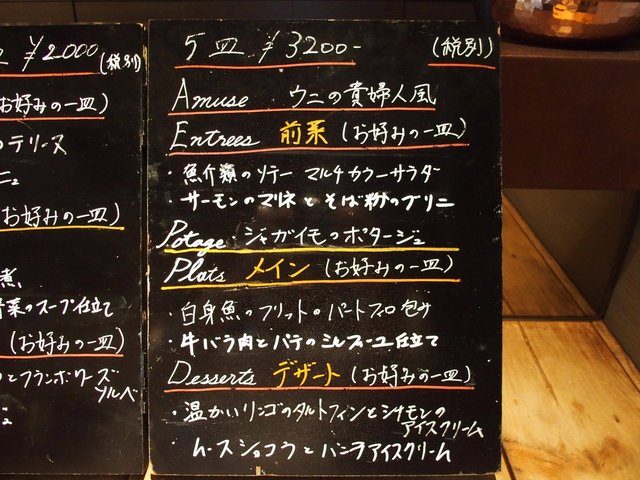 ¥2000(税別)
お好みの一皿)
のテリーヌ
ニュ
(お好みの一皿)
煮
野菜のスープ仕立て
(お好みの一皿)
とフランボワーズ
ソルベ
5皿 ¥3200- (税別)
Amuse ウニの貴婦人風
Entrees 前菜 (お好みの一皿)
・魚介類のソテー マルチカラーサラダ
・サーモンのマリネとそば粉のブリニ
Potage・ジャガイモのポタージュ
Plats メイン (お好みの一皿)
・白身魚のフリットのパートフィロ包み
・牛バラ肉とパテのミルフィーユ仕立て
Desserts デザート (お好みの一皿)
・温かいリンゴのタルトフィンとシナモンの
アイスクリーム
ムースショコラとバニラアイスクリーム